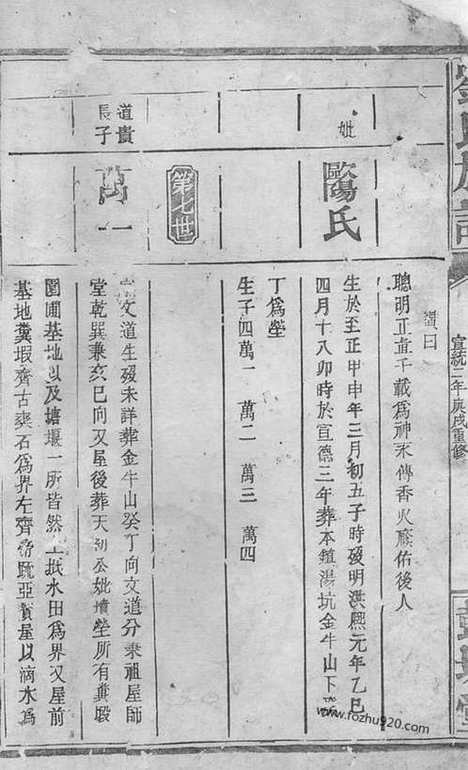 氏族譜
宣統二年庚戌重修
贊曰
聰明正直千載為神永傳香火蔭佑後人
妣
歐陽氏
生於至正甲申年三月初五子時歿明洪熙元年乙巳
四月十八卯時於宣德三年葬本鎮湯坑金牛山下
丁為塋
生子四萬一 萬二 萬三 萬四
第七世
道貴
長子
萬一
文道生歿未詳葬金牛山癸丁向文道分乘祖屋師
堂乾巽兼亥巳向又屋後葬天初公妣墳塋所有糞塅
園圃基地以及塘堰一所皆然上抵水田為界又屋前
基地糞塅齊古窖石為界左齊 亞賓屋以滴水為
www.fozhu920.com